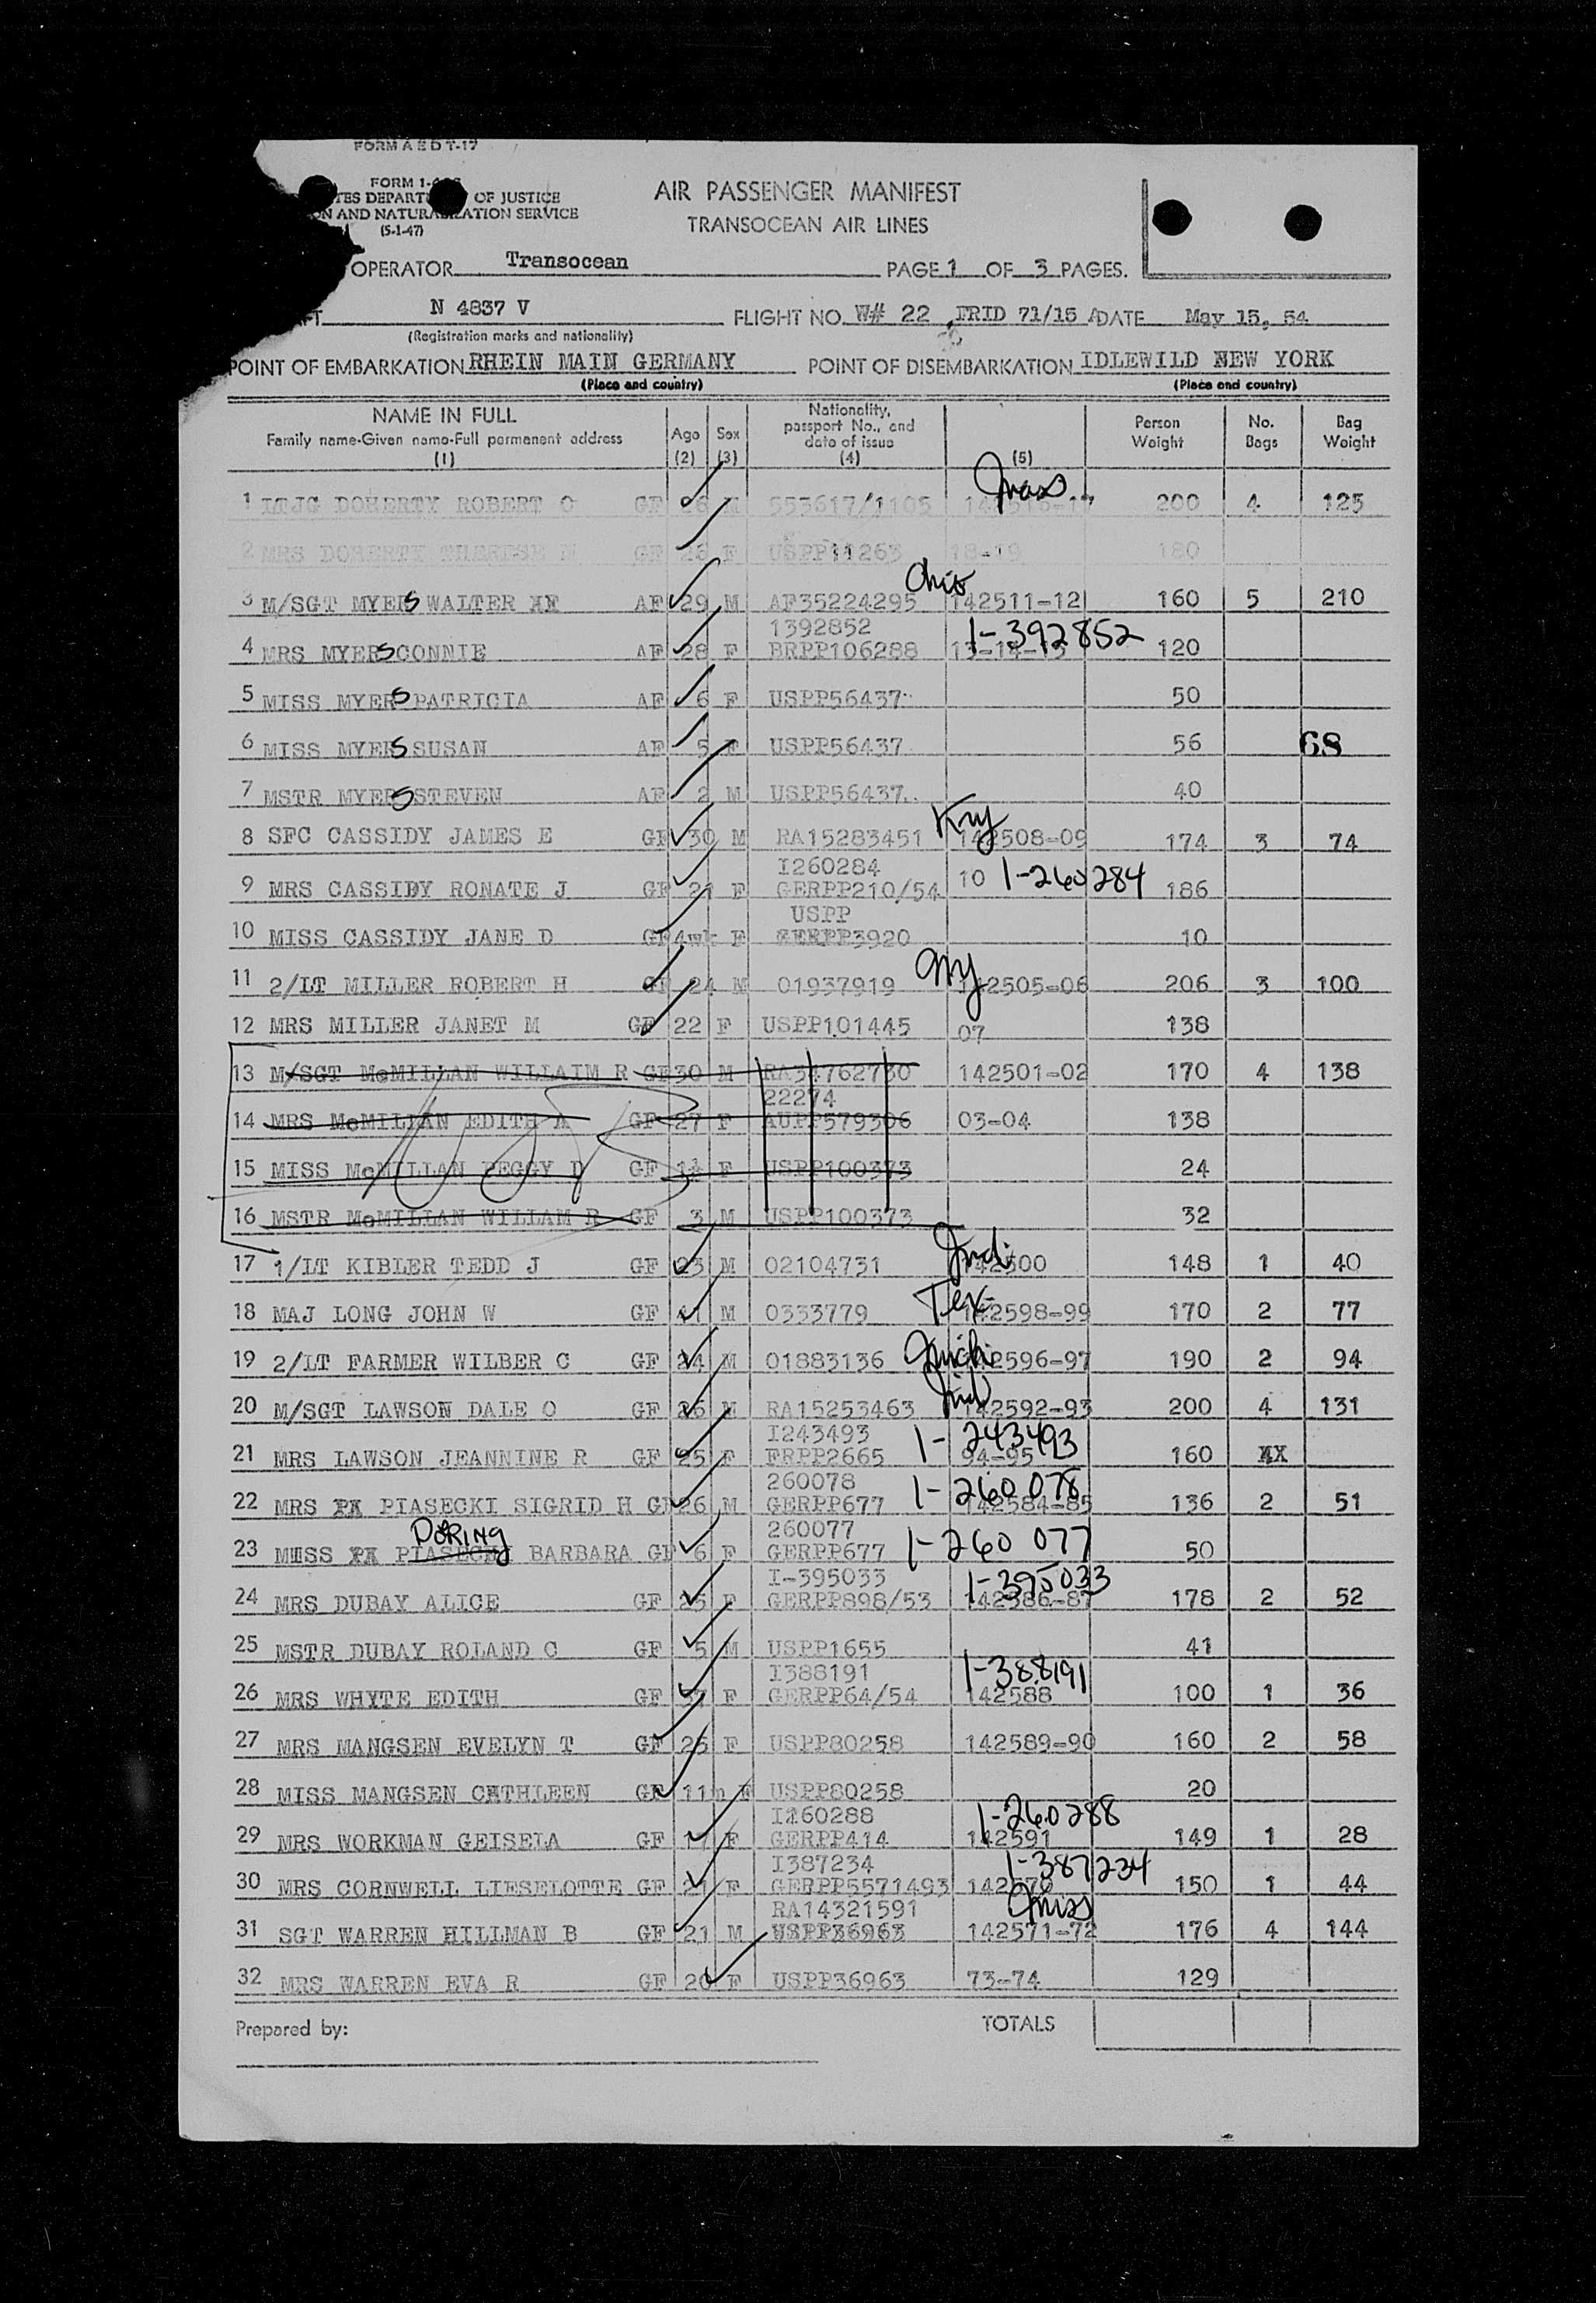 FORM A E D T-17
FORM 1-
TES DEPART OF JUSTICE
N AND NATURALIZATION SERVICE
(5-1-47)
AIR PASSENGER MANIFEST
TRANSOCEAN AIR LINES
OPERATOR Transocean PAGE 1 OF 3 PAGES.
N 4837 V FLIGHT NO. W# 22 FRID 71/15 A DATE May 15, 54
(Registration marks and nationality)
POINT OF EMBARKATION RHEIN MAIN GERMANY POINT OF DISEMBARKATION IDLEWILD NEW YORK
(Place and country) (Place and country)
NAME IN FULL
Family name-Given name-Full permanent address
(1)
Age
(2)
Sex
(3)
Nationality,
passport No., and
date of issue
(4)
(5)
Person
Weight
No.
Bags
Bag
Weight
Mass
1 LTJG DOHERTY ROBERT O GF 26 M 553617/1105 200 4 125
2 MRS DOHERTY THERESE GF 28 F USPP11263 18-19 180
Ohio
3 M/SGT MYERS WALTER AF 29 M AF35224295 142511-12 160 5 210
1392852 1-392852
4 MRS MYERS CONNIE AF 28 F BRPP106288 13-14-15 120
5 MISS MYERS PATRICIA AF 6 F USPP56437 50
6 MISS MYERS SUSAN AF 5 F USPP56437 56 68
7 MSTR MYERS STEVEN AF 2 M USPP56437 40
Ky
8 SFC CASSIDY JAMES E GF 30 M RA15283451 142508-09 174 3 74
I260284
9 MRS CASSIDY RONATE J GF 21 F GERPP210/54 10 1-260284 186
USPP
10 MISS CASSIDY JANE D GF 4wk F GERPP3920 10
NY
11 2/LT MILLER ROBERT H GF 24 M 01937919 142505-06 206 3 100
12 MRS MILLER JANET M GF 22 F USPP101445 07 138
13 M/SGT McMILLAN WILLAIM R GF 30 M RA34762730 142501-02 170 4 138
22274
14 MRS McMILLAN EDITH A GF 27 F AUPP579306 03-04 138
15 MISS McMILLAN PEGGY D GF 1½ F USPP100373 24
16 MSTR McMILLAN WILLAM R GF 3 M USPP100373 32
Ind
17 1/LT KIBLER TEDD J GF 23 M 02104731 142500 148 1 40
Tex
18 MAJ LONG JOHN W GF 41 M 0333779 142598-99 170 2 77
Mich
19 2/LT FARMER WILBER C GF 24 M 01883136 142596-97 190 2 94
Ind
20 M/SGT LAWSON DALE O GF 26 M RA15253463 142592-93 200 4 131
I243493 1-243493
21 MRS LAWSON JEANNINE R GF 25 F FRPP2665 94-95 160
260078 1-260 078
22 MRS PIASECKI SIGRID H GF 26 M GERPP677 142584-85 136 2 51
DORING 260077
23 MISS PIASECKI BARBARA GF 6 F GERPP677 1-260 077 50
I-395033 1-395033
24 MRS DUBAY ALICE GF 25 F GERPP898/53 142586-87 178 2 52
25 MSTR DUBAY ROLAND C GF 5 M USPP1655 41
I388191 1-388191
26 MRS WHYTE EDITH GF F GERPP64/54 142588 100 1 36
27 MRS MANGSEN EVELYN T GF 26 F USPP80258 142589-90 160 2 58
28 MISS MANGSEN CATHLEEN GF 11m F USPP80258 20
I260288 1-260288
29 MRS WORKMAN GEISELA GF 17 F GERPP414 142591 149 1 28
I387234 1-387234
30 MRS CORNWELL LIESELOTTE GF 21 F GERPP5571493 142570 150 1 44
RA14321591 Miss
31 SGT WARREN HILLMAN B GF 21 M USPP36963 142571-72 176 4 144
32 MRS WARREN EVA R GF 20 F USPP36963 73-74 129
Prepared by: TOTALS